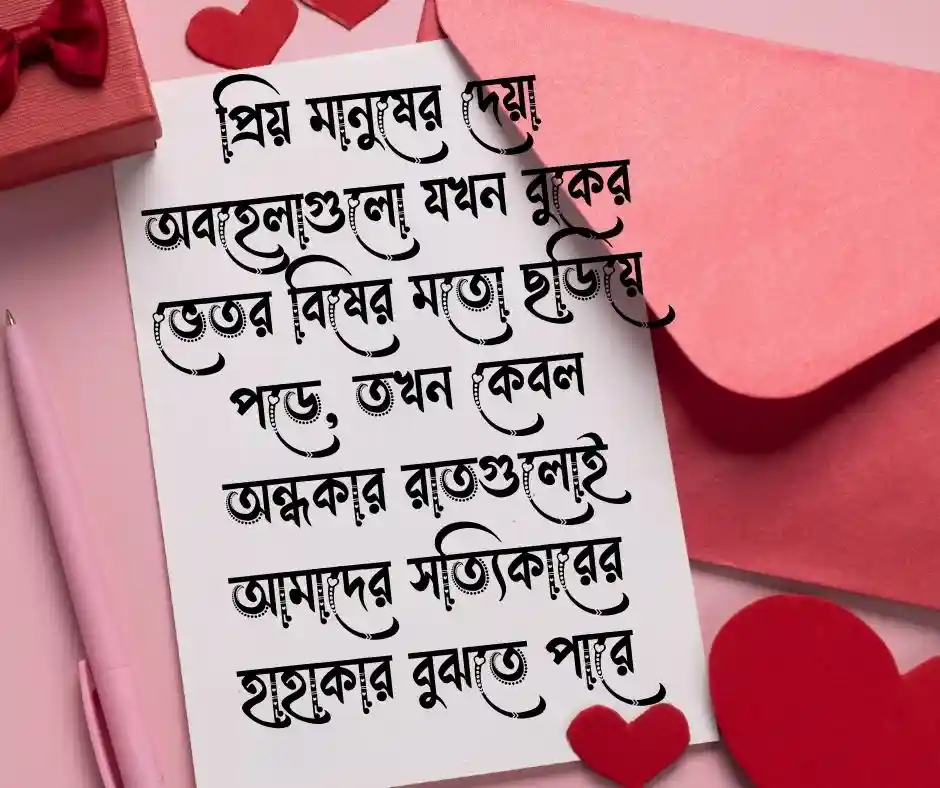 প্রিয় মানুষের দেয়া
অবহেলাগুলো যখন বুকের
ভেতর বিষের মতো ছড়িয়ে
পড়ে, তখন কেবল
অন্ধকার রাতগুলোই
আমাদের সত্যিকারের
হাহাকার বুঝতে পারে